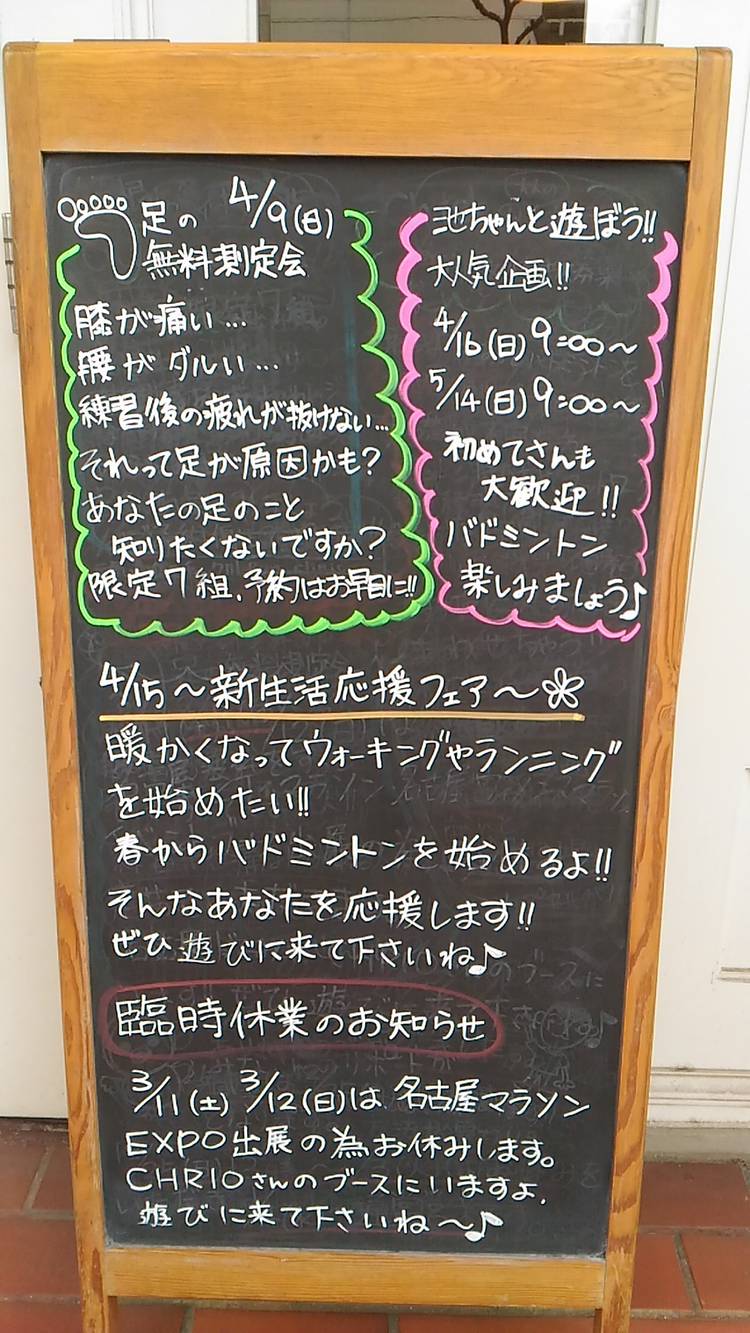 4/9(日)
足の
無料測定会
膝が痛い…
腰がダルい…
練習後の疲れが抜けない…
それって足が原因かも?
あなたの足のこと
知りたくないですか?
限定7組、予約はお早目に!!
池ちゃんと遊ぼう!!
大人気企画!!
4/16(日)9:00～
5/14(日)9:00～
初めてさんも
大歓迎!!
バドミントン
楽しみましょう♪
4/15～新生活応援フェア～
暖かくなってウォーキングやランニング
を始めたい!!
春からバドミントンを始めるよ!!
そんなあなたを応援します!!
ぜひ遊びに来て下さいね♪
臨時休業のお知らせ
3/11(土)3/12(日)は名古屋マラソン
EXPO出展の為お休みします。
CHRIOさんのブースにいますよ、
遊びに来て下さいね～♪